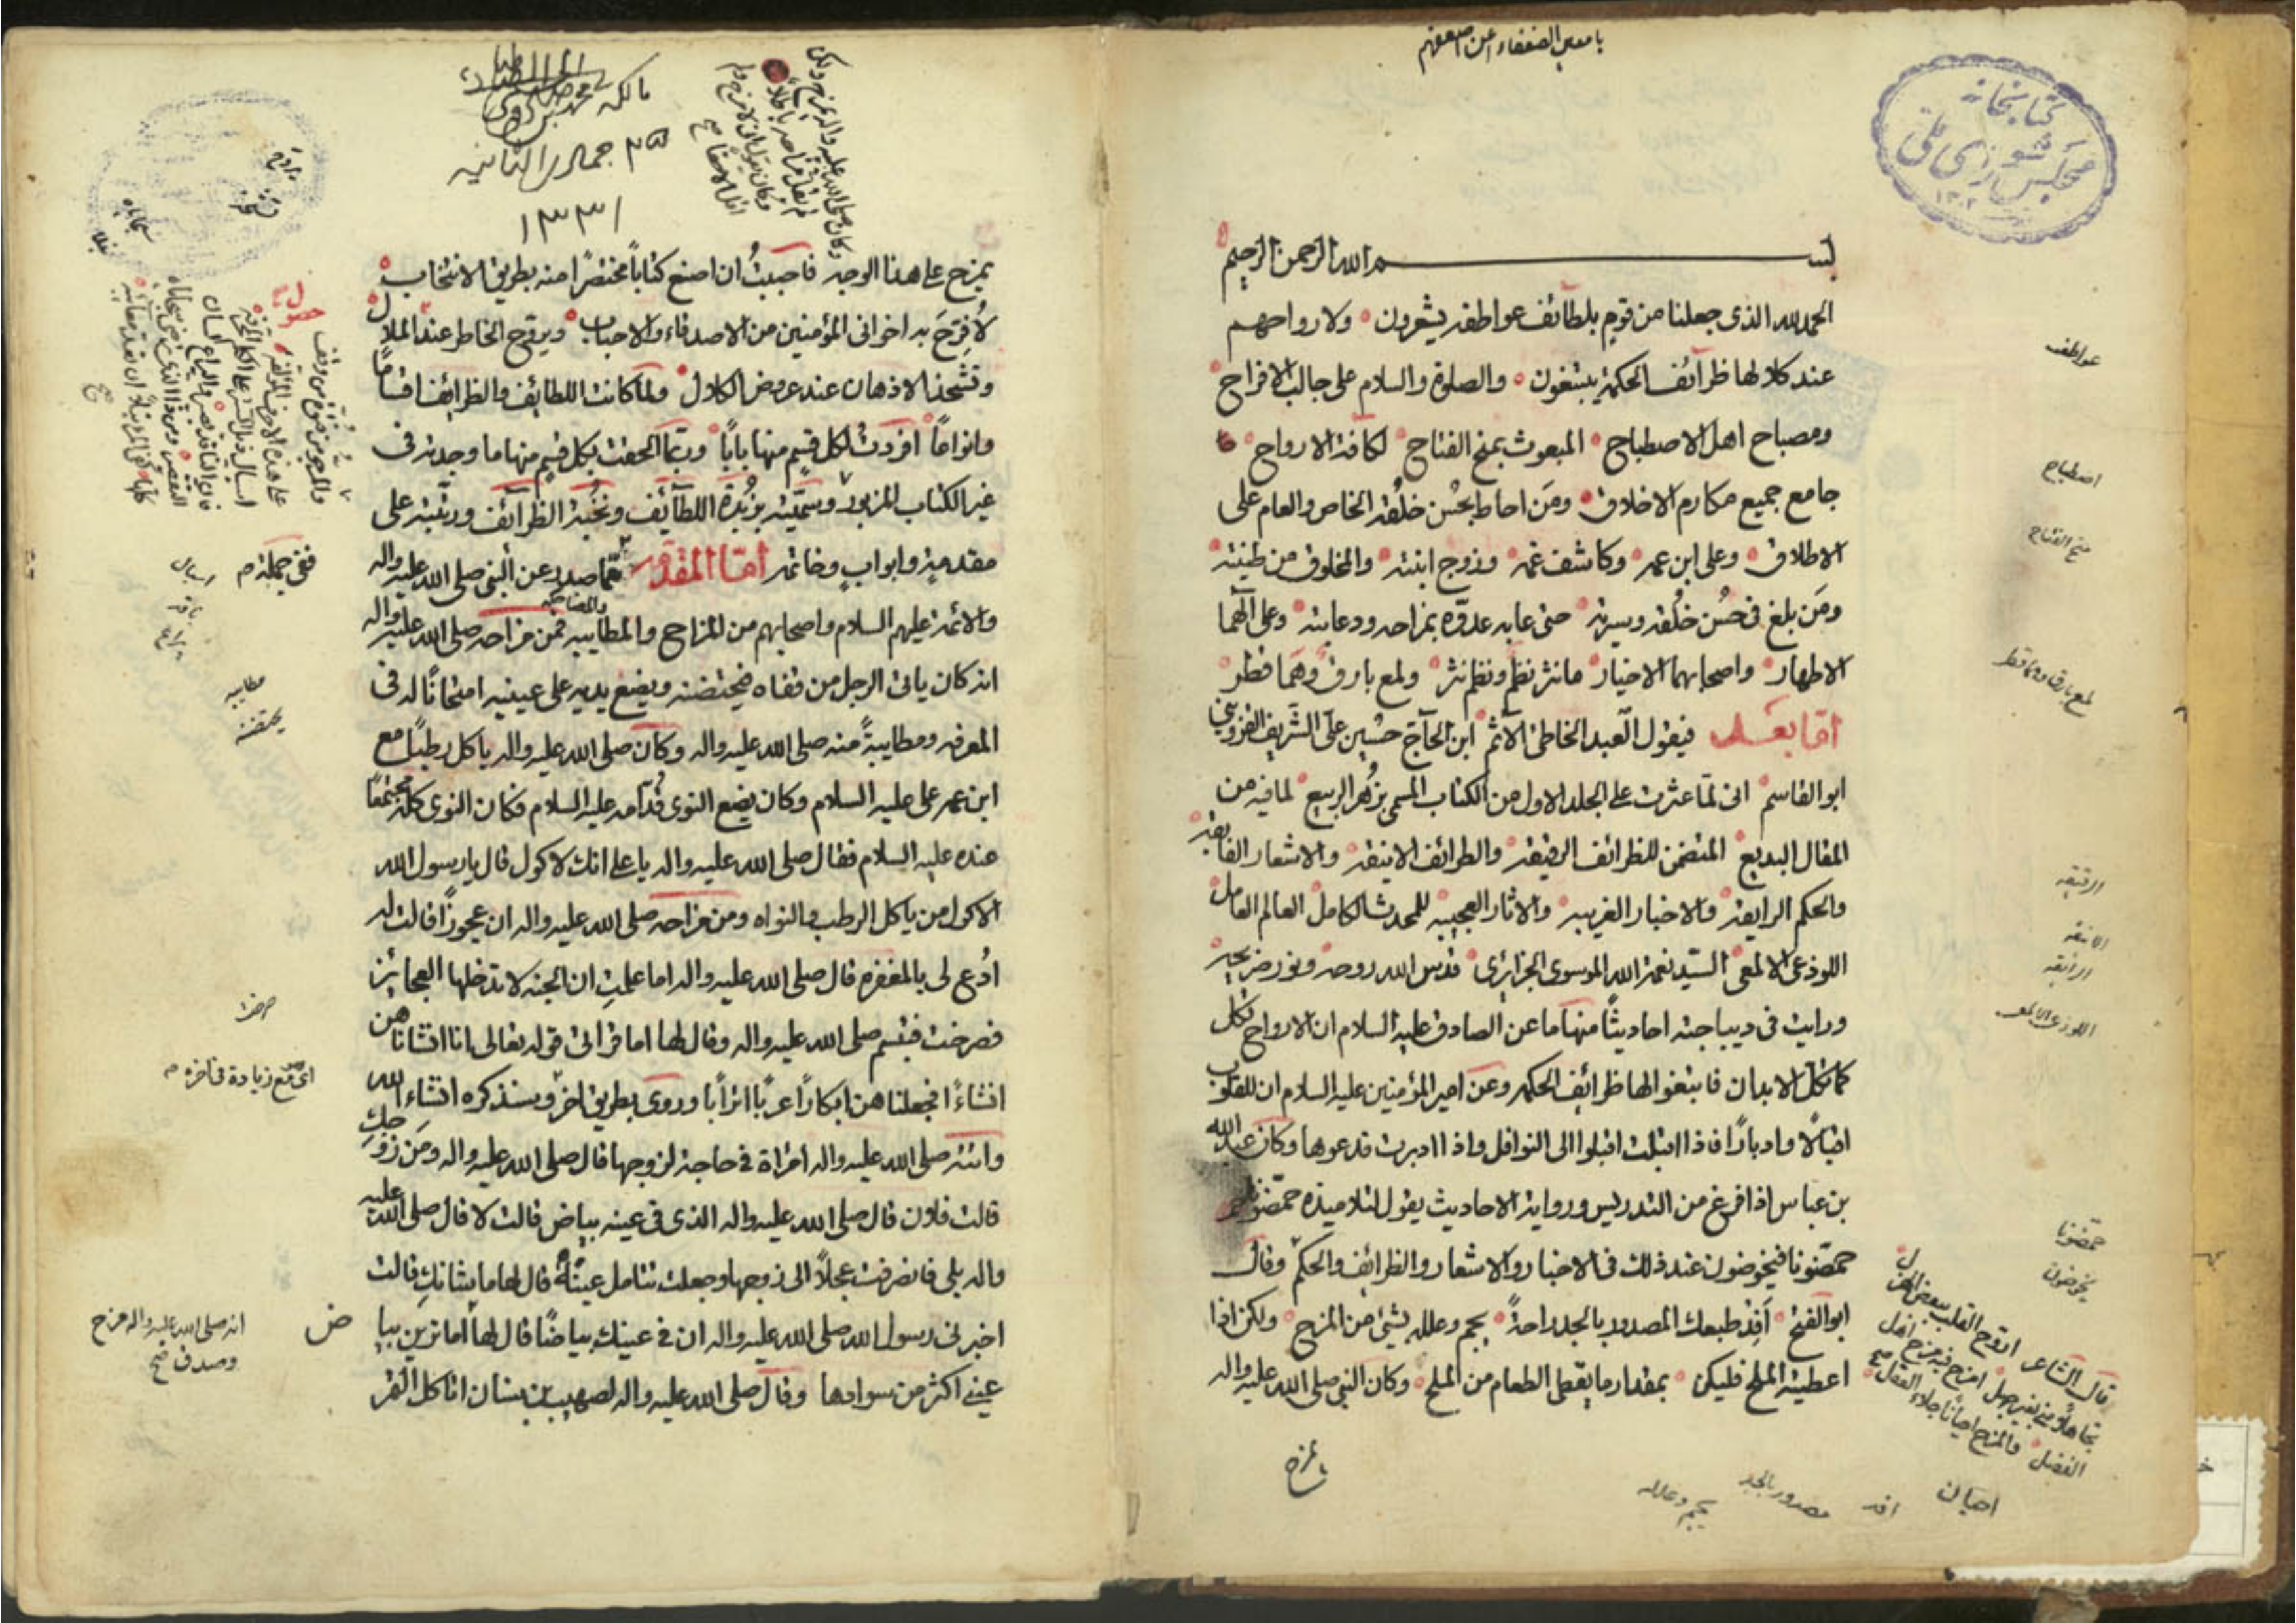 يا معين الضعفاء
كتابخانه
مجلس شورای ملی
بسم الله الرحمن الرحيم
الحمد لله الذى جعلنا من قوم بلطائف عواطفه يشعرون ولارواحهم
عند كلالها ظرائف الحكمة يبتغون والصلوة والسلام على جالب الافراح
ومصباح اهل الاصطباح المبعوث بمنح الفتاح لكافة الارواح
جامع جميع مكارم الاخلاق ومن احاط بحسن خلقه الخاص والعام على
الاطلاق وعلى ابن عمه وكاشف غمه وزوج ابنته والمخلوق من طينته
ومن بلغ فى حسن خلقه وسيرته حتى عابه عدوّه بمزاحه ودعابته وعلى آلهما
الاطهار واصحابهما الاخيار ما نثر نظم ونظم نثر ولمع بارق وهما قطر
امّا بعد فيقول العبد الخاطئ الآثم ابن الحاج حسين على الشريف القزوينى
ابو القاسم انى لمّا عثرت على الجلد الاول من الكتاب المسمى بزهر الربيع لما فيه من
المقال البديع المتضمن للظرائف الرقيقه والطرائف الانيقه والاشعار الفايقه
والحكم الرايقه والاخبار الغريبه والاثار العجيبه للمحدث الكامل العالم العامل
اللوذعى الالمعى السيّد نعمة الله الموسوى الجزائرى قدس الله روحه ونور ضريحه
ورايت فى ديباجته احاديثاً منها ما عن الصادق عليه السلام ان الارواح تكل
كما تكل الابدان فابتغوا لها ظرائف الحكمه وعن امير المؤمنين عليه السلام ان للقلوب
اقبالاً وادباراً فاذا اقبلت اقبلوا الى النوافل واذا ادبرت فدعوها وكان عبد الله
بن عباس اذا فرغ من التدريس ورواية الاحاديث يقول لتلاميذه حمّضونا
حمّضونا فيخوضون عند ذلك فى الاخبار والاشعار والظرائف والحكم وقال
ابو الفتح افد طبعك المصدود بالجد راحةً بجم وعلله بشئ من المزح ولكن اذا
اعطيته المزح فليكن بمقدار ما يعطى الطعام من الملح وكان النبى صلى الله عليه واله
يمزح
عواطف
اصطباح
منح الفتاح
لمع بارق وهما قطر
الرقيقه
الانيقه
الرايقه
اللوذعى الالمعى
حمّضونا
يخوضون
قال الشاعر اروّح القلب ببعض الهزل
تجاهلاً منى بغير جهل امزح فيه مزح اهل
الفضل والمزح احياناً جلاء العقل
احيان
افد
مصدود بالجد
بجم وعلله
مالكه
٢٥ جمادى الثانيه
١٣٣١
يمزح على هذا الوجه فاحببت ان اصنع كتاباً مختصراً منه بطريق الانتخاب
لأفرّح به اخوانى المؤمنين من الاصدقاء والاحباب ويروّح الخاطر عند الملال
وتشحذ الاذهان عند عروض الكلال ولما كانت اللطائف والظرائف اقساماً
وانواعاً افردت لكل قسم منها باباً وربّما الحقت بكل قسم منها ما وجدته فى
غير الكتاب المزبور وسمّيته بزبدة اللطائف ونخبة الظرائف ورتّبته على
مقدمة وابواب وخاتمه امّا المقدمه ممّا صدر عن النبى صلى الله عليه واله
والائمة عليهم السلام واصحابهم من المزاح والمطايبه فمن مزاحه صلى الله عليه واله
انه كان ياتى الرجل من قفاه فيحتضنه ويضع يديه على عينيه امتحاناً له فى
المعرفه ومطايبةً منه صلى الله عليه واله وكان صلى الله عليه واله ياكل رطباً مع
ابن عمه على عليه السلام وكان يضع النوى قدّامه عليه السلام فكان النوى كله مجتمعاً
عنده عليه السلام فقال صلى الله عليه واله يا على انك لاكول قال يا رسول الله
الاكول من ياكل الرطب والنواه ومن مزاحه صلى الله عليه واله ان عجوزاً قالت له
ادع لى بالمغفره قال صلى الله عليه واله اما علمت ان الجنه لا تدخلها العجائز
فصرخت فتبسم صلى الله عليه واله وقال لها اما قرأتى قوله تعالى انا انشأناهن
انشاءً فجعلناهن ابكاراً عرباً اتراباً وروى بطريق اخر وسنذكره انشاء الله
واتته صلى الله عليه واله امراة فى حاجة لزوجها قال صلى الله عليه واله ومن زوجك
قالت فلان قال صلى الله عليه واله الذى فى عينه بياض قالت لا قال صلى الله عليه
واله بلى فانصرفت عجلاً الى زوجها وجعلت تتامل عينه قال لها ما شانك قالت
اخبرنى رسول الله صلى الله عليه واله ان فى عينك بياضاً قال لها اما ترين بيا
ض
عينى اكثر من سوادها وقال صلى الله عليه واله لصهيب بن سنان اتاكل التمر
ففى جملة
مطايبه
يحتضنه
انه صلى الله عليه واله مزح
وصدق صح